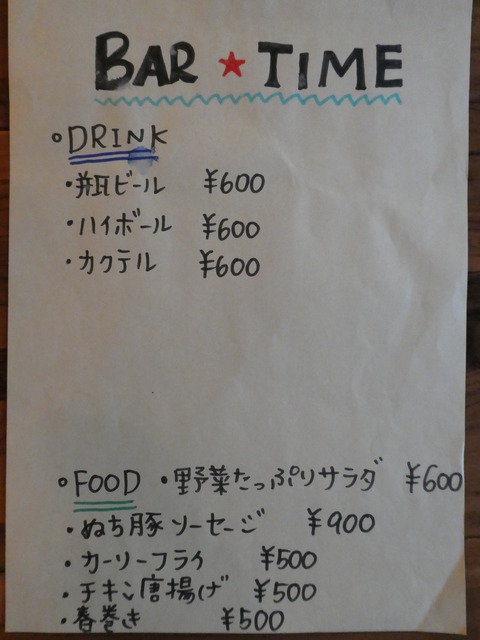 BAR★TIME
○DRINK
・瓶ビール ¥600
・ハイボール ¥600
・カクテル ¥600
○FOOD ・野菜たっぷりサラダ ¥600
・ぬち豚ソーセージ ¥900
・カーリーフライ ¥500
・チキン唐揚げ ¥500
・春巻き ¥500